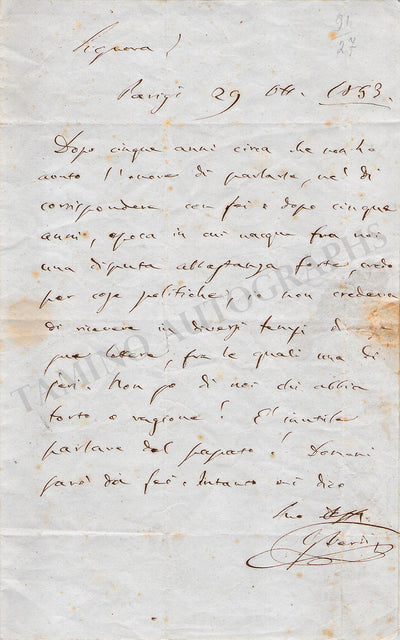 31
27
Signora!
Parigi 29 Ott. 1853.
Dopo cinque anni circa che non ho
avuto l'onore di parlarle, nè di
corrispondere con Lei e dopo cinque
anni, epoca in cui nacque fra noi
una disputa abbastanza forte, credo
per cose politiche, io non credeva
di ricevere in diversi tempi due
sue lettere, fra le quali una di
jeri. Non so di noi chi abbia
torto o ragione! È inutile
parlare del passato! Domani
sarò da Lei. Intanto mi dico
Suo
G Verdi
TAMINO AUTOGRAPHS